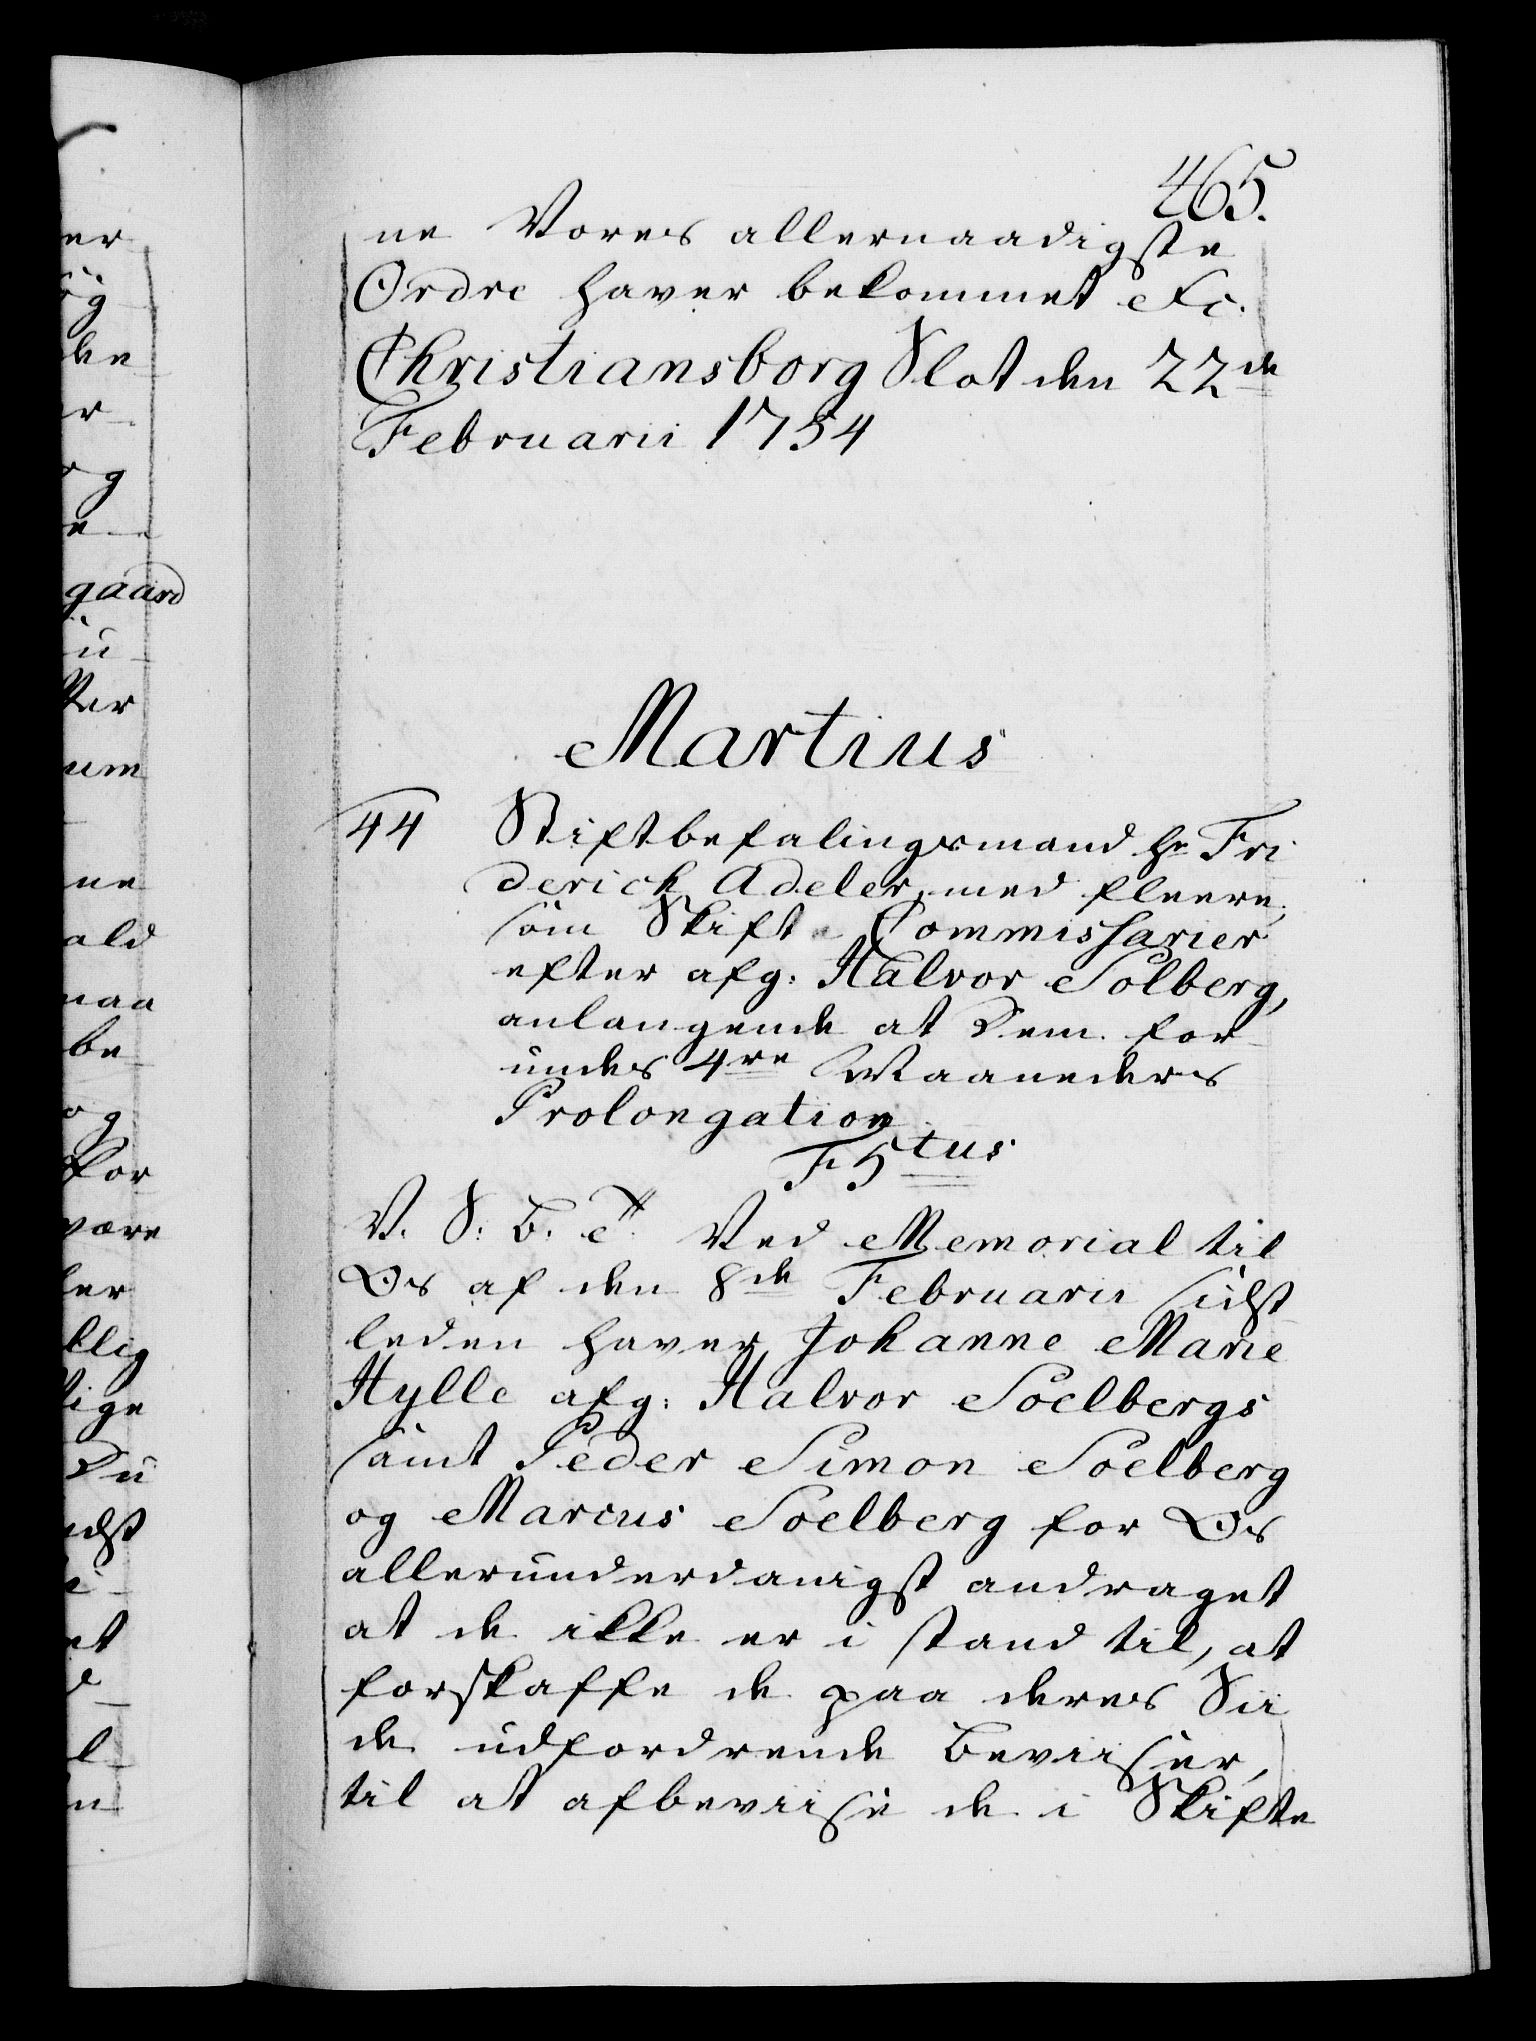 465.
ne Vores allernaadigste
Ordre haver bekommet &c.
Christiansborg Slot den 22de
Februarii 1754
Martius
44 Stiftbefalingsmand hr Fri
derich Adeler, med fleere,
som Skifte Commissarier
efter afg: Halvor Solberg,
anlangende at Dem. for
undes 4re Maaneders
Prolongation
F 5tus
V. S: B. A. Ved Memorial til
Os af den 8de Februarii sidst
leden haver Johanne Marie
Hylle afg: Halvor Soelbergs
samt Peder Simon Soelberg
og Marcus Soelberg for Os
allerunderdanigst andraget
at de ikke er i stand til, at
forskaffe de paa deres Sii
de udfordrende Beviiser,
til at afbeviise de i Skifte
er
ög
den
er
og
e
gaard
ü
ter
um
ne
ald
naa
be
og
for
være
ler
llig
lige
Du
idst
et
d
l
n